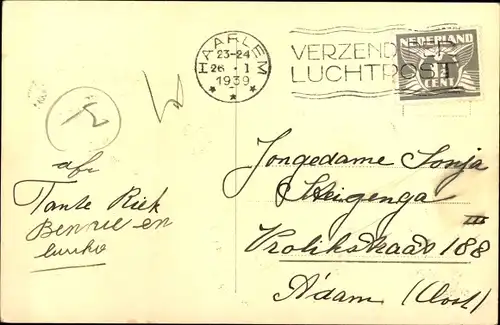 HAARLEM
23-24
26.I
1939
VERZEND PER
LUCHTPOST
NEDERLAND
1½
CENT
afz
Tante Riek
Bennie en
Jongedame Sonja
Steigenga
Vrolikstraat 188 III
A'dam (Oost)